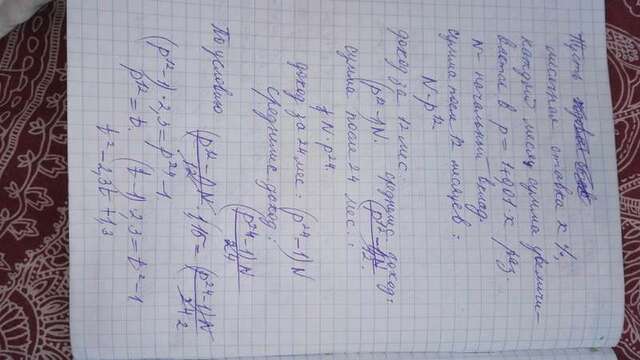 Пусть
месячная ставка x %,
каждый месяц сумма увеличи-
вается в p = 1+0,01x раз.
N - начальный вклад
сумма после 12 месяцев:
N·p¹²
доход за 12 мес.
(p¹²-1)N. средние доход:
(p¹²-1)N/12
сумма после 24 мес.:
N·p²⁴
доход за 24 мес: (p²⁴-1)N
средние доход:
(p²⁴-1)N/24
По условию
(p¹²-1)N/12 · 1,15 = (p²⁴-1)N/24 2
(p¹²-1)·2,3 = p²⁴-1
p¹² = t. (t-1)·2,3 = t²-1
t²-2,3t+1,3